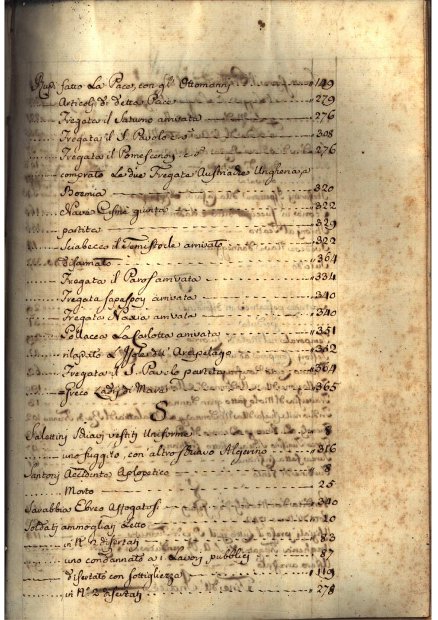 Rusi fatto La Pace, con gl' Ottomanni 149
Articoli di detta Pace 279
Fregata il Saturno arrivata 276
Fregata il S. Pavolo 308
Fregata il 276
comprato Le due Fregata Austriache Ungheria,
Boemia 320
Nave giunta 322
partita 329
Sciabecco il Temistocle arrivato 322
Disarmato 364
Fregata il Paros arrivata 334
Fregata arrivata 340
Fregata Naxia arrivata 340
Pollacca La Carlotta arrivata 351
rilasciato L'Isole dell' Arcipelago 362
Fregata il S. Pavolo partita 364
Greco di 365
S
Salettini Schiavi vestiti Uniforme 8
uno fuggito, con altro Schiavo Algerino 316
Santoni Accidente Aplopetico 8
Morto 25
Sarabbia Ebreo Affogatosi 340
Soldati ammogliati 10
in N.º 2 disertati 83
uno condannato a i Lavori pubblici 87
disertato con sottigliezza 119
in N.º 2 disertati 278